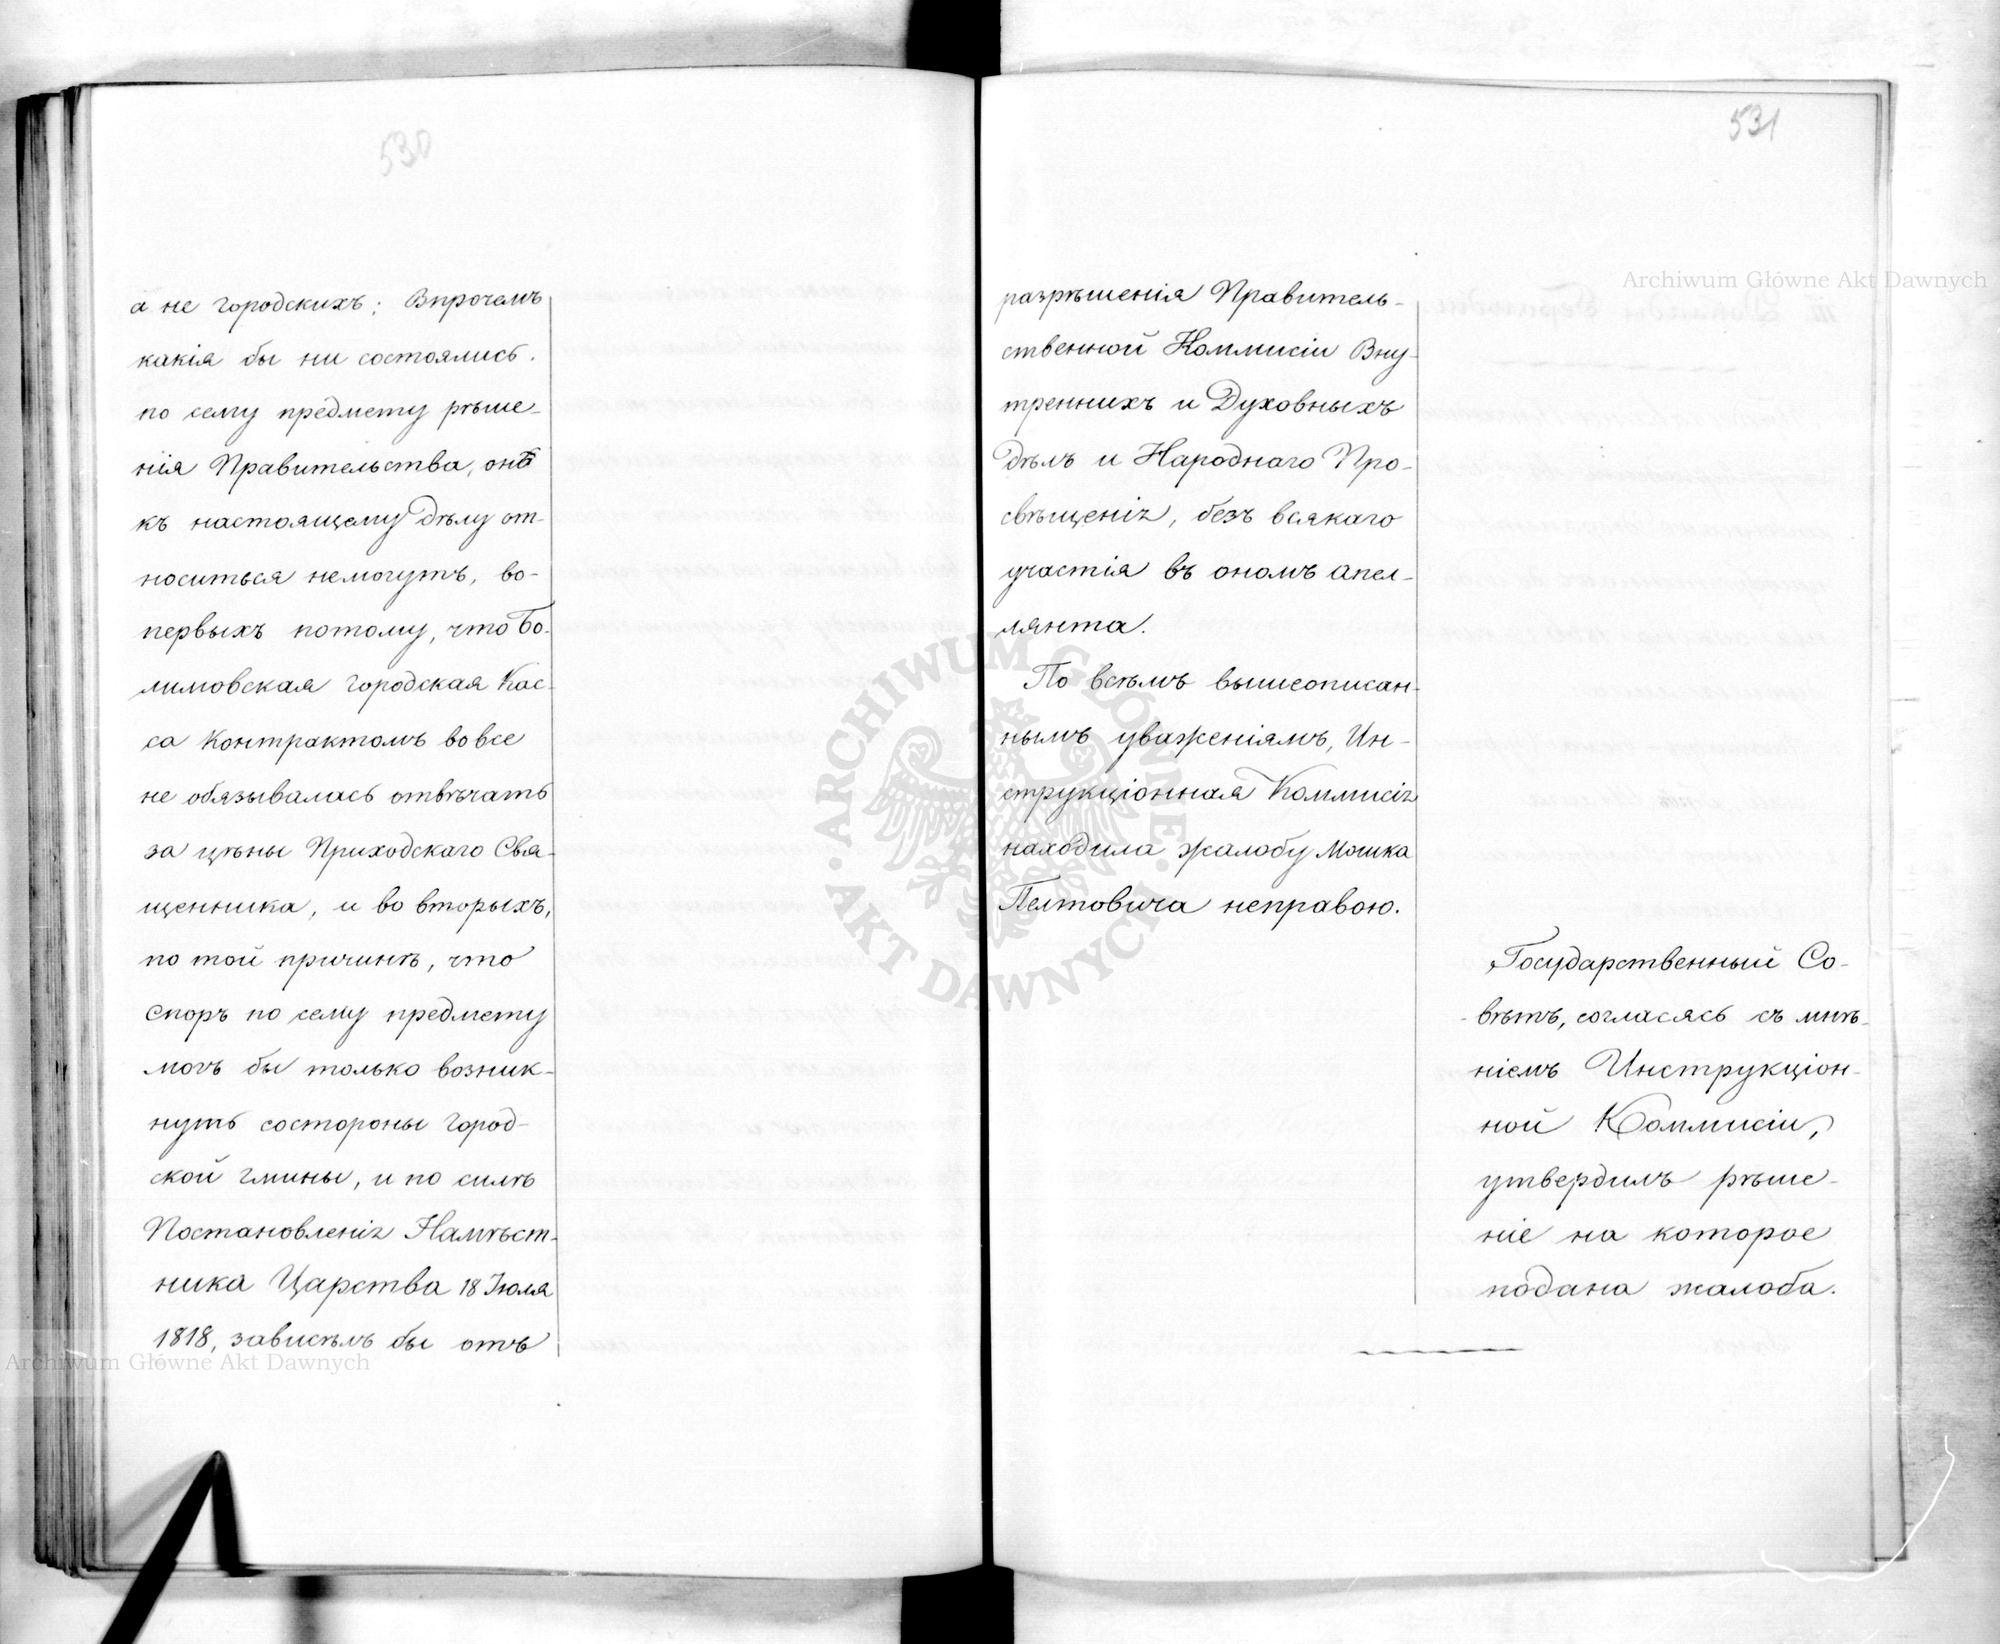 530
а не городскихъ; Впрочемъ
какія бы ни состоялись.
по сему предмету рѣше-
нія Правительства, онѣ
къ настоящему дѣлу от-
носиться немогутъ, во-
первыхъ потому, что Бо-
лимовская городская Кас-
са Контрактомъ вовсе
не обязывалась отвѣчать
за цѣны Приходскаго Свя-
щенника, и во вторыхъ,
по той причинѣ, что
споръ по сему предмету
могъ бы только возник-
нуть состороны город-
ской гмины, и по силѣ
Постановленія Намѣст-
ника Царства 18 Іюля
1818, зависѣлъ бы отъ
Archiwum Główne Akt Dawnych
531
Archiwum Główne Akt Dawnych
разрѣшенія Правитель-
ственной Коммисіи Вну-
треннихъ и Духовныхъ
дѣлъ и Народнаго Про-
свѣщенія, безъ всякаго
участія въ ономъ апел-
лянта.
По всѣмъ вышеописан-
нымъ уваженіямъ, Ин-
струкціонная Коммисія
находила жалобу Мошка
Пелтовича неправою.
Государственный Со-
вѣтъ, согласясь съ мнѣ-
ніемъ Инструкціон-
ной Коммисіи,
утвердилъ рѣше-
ніе на которое
подана жалоба.
ARCHIWUM GŁÓWNE AKT DAWNYCH